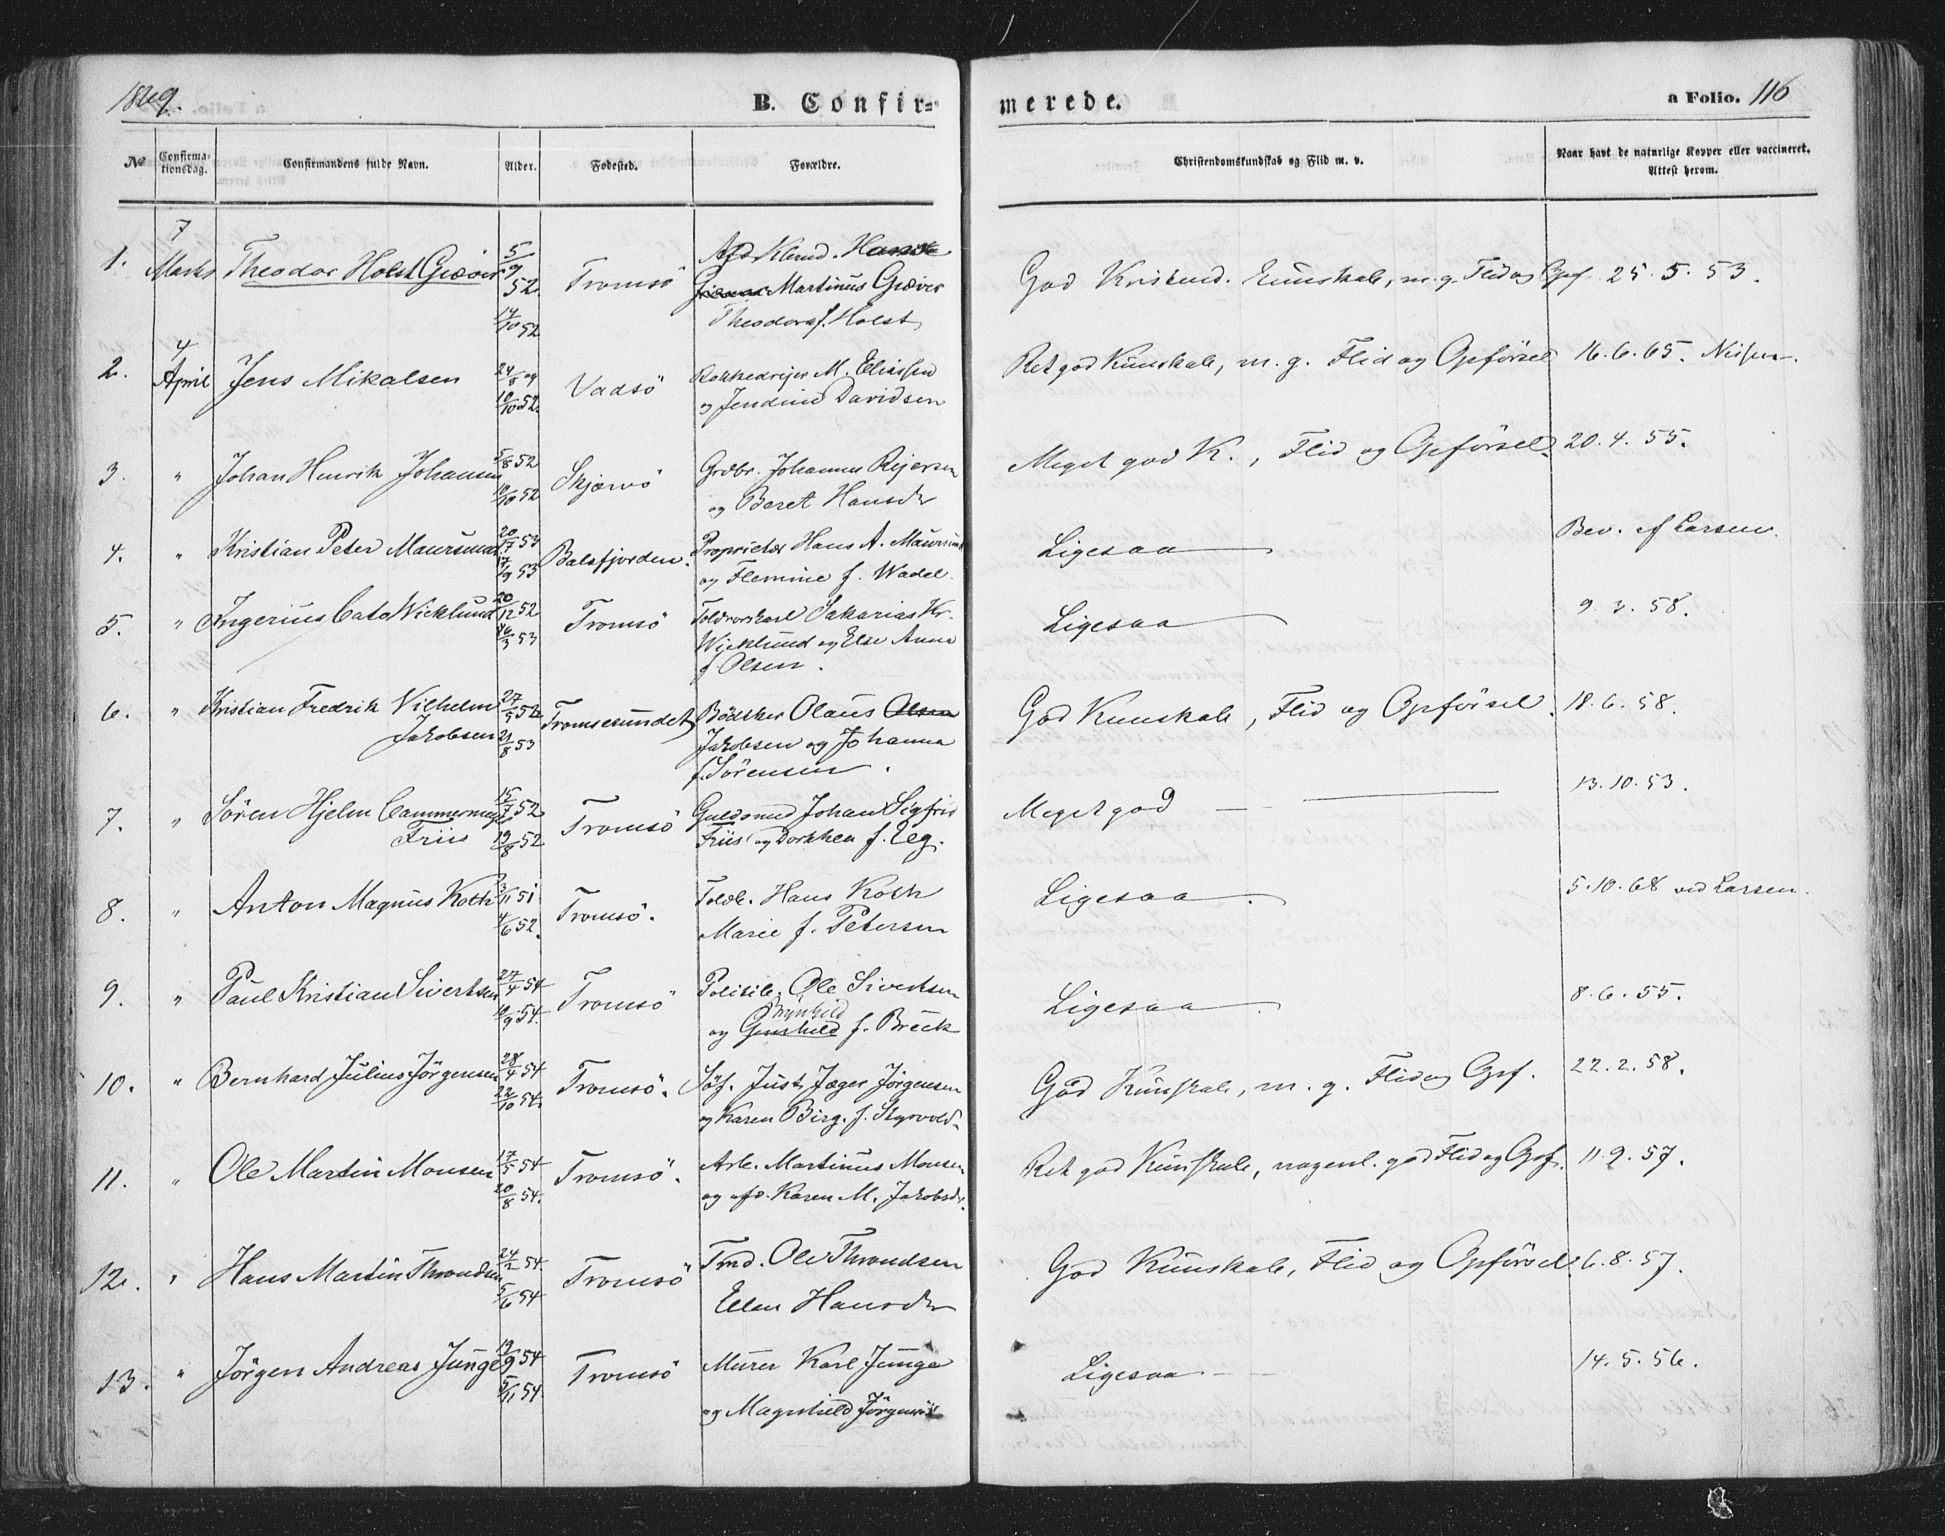 1869.
B. Confir-
merede.
a Folio. 116
No
Confirma-
tionsdag.
Confirmandens fulde Navn.
Alder.
Fødested.
Forældre.
Christendomskundskab og Flid m. v.
Naar havt de naturlige Kopper eller vaccineret.
Attest herom.
1. 7 Marts Theodor Holst Giæver 5/9 52. 14/10 52 Tromsö
Martinus Giæver
Theodora f. Holst
God Kristend. Kunskab, m. g. Flid og Opf. 25. 5. 53.
2. 4 April Jens Mikalsen 10/10 52. Vadsö
M. Eliassen
og Jendine Davidsen
Ret god Kunskab, m. g. Flid og Opförsel 16. 6. 65. Nissen.
3. " Johan Henrik Johansen 5/8 52 10/10 52 Skjærvö
Grdbr. Johannes Rejersen
og Beret Hansdr
Meget god K., Flid og Opförsel. 20. 4. 55.
4. " Kristian Peter Maursund 20/7 53 17/9 53 Balsfjorden.
Proprietær Hans A. Maursund
og Flemine f. Wadel.
Ligesaa
Bev. af Larsen.
5. " Ingerius Cato Wicklund 20/12 52 16/3 53 Tromsö
Toldrorskarl Sakarias Kr.
Wicklund og Else Anna
f. Olsen.
Ligesaa
9. 3. 58.
6. " Kristian Fredrik Vilhelm
Jakobsen 27/5 52 21/8 53 Tromsesundet
Bödtker Olaus Olsen
Jakobsen og Johanna
f. Sörensen.
God Kunskab, Flid og Opförsel. 18. 6. 58.
7. " Sören Hjelm Cammermeyer
Friis 15/7 52 19/8 52 Tromsö
Guldsmed Johan Sigfrid
Friis og Dorthea f. Eeg.
Meget god — ——
13. 10. 53.
8. " Anton Magnus Koth 3/11 51 4/6 52. Tromsö.
Toldb. Hans Koth
Marie f. Petersen
Ligesaa.
5. 10. 68 ved Larsen.
9. " Paul Kristian Sivertsen 27/4 54 10/9 54. Tromsö
Politib. Ole Sivertsen
Brynhild
og Gunhild f. Breck
Ligesaa.
8. 6. 55.
10. " Bernhard Julius Jörgensen 28/4 54 22/10 54. Tromsö.
Söf. Just Jæger Jörgensen
og Karen Birg. f. Styrvold.
God Kunskab, m. g. Flid og Opf. 22. 2. 58.
11. " Ole Martin Monsen 17/5 54 20/8 54. Tromsö.
Arb. Martinus Monsen
og afd. Karen M. Jakobsdr.
Ret god Kunskab, nogenl. god Flid og Opf. 11. 9. 57.
12. " Hans Martin Throndsen 24/2 54. 5/6 54 Tromsö
Tmd. Ole Throndsen
Ellen Hansdr
God Kunskab, Flid og Opförsel. 6. 8. 57.
13. " Jörgen Andreas Junge 19/9 54 5/11 54. Tromsö
Murer Karl Junge
og Magnhild
Ligesaa
14. 5. 56.